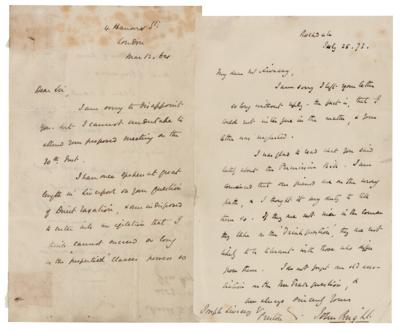 4 Hanover St.
London
Mar 12. 64
Dear Sir,
I am sorry to disappoint
you - but I cannot undertake to
attend your proposed meeting on the
30th Inst.
I have once spoken at great
length in Liverpool on your question
of Direct Taxation, & am indisposed
to enter into an agitation that I
cannot succeed so long
as the "propertied" classes possess so
Rochdale
July 25. 73.
My dear Mr Livesey,
I am sorry I left your letter
so long without reply - the fact is, that I
could not interfere in the matter, & your
letter was neglected.
I was glad to read what you said
lately about the Permissive Bill. I am
convinced that our friends are on the wrong
path, & I thought it my duty to tell
them so. If they are not wiser in the course
they take on the "Drink question", they are not
likely to be tolerant with those who differ
from them. I do not forget our old
in the Free Trade question, &
am always sincerely yours
Joseph Livesey
John Bright.